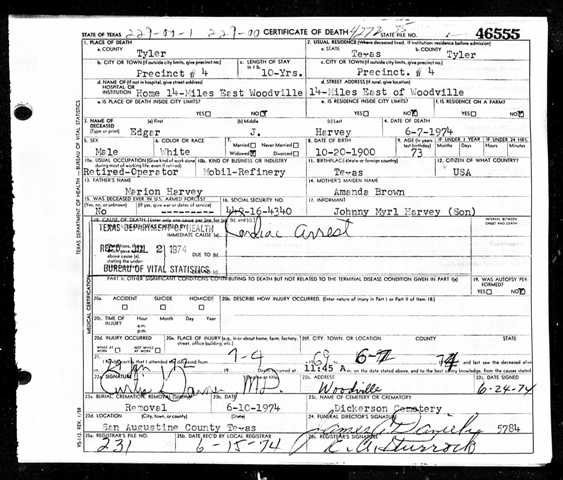 STATE OF TEXAS CERTIFICATE OF DEATH STATE FILE NO. 46555
1. PLACE OF DEATH 2. USUAL RESIDENCE (Where deceased lived. If institution: residence before admission)
a. COUNTY Tyler a. STATE Texas b. COUNTY Tyler
b. CITY OR TOWN (If outside city limits, give precinct no.) c. LENGTH OF STAY c. CITY OR TOWN (If outside city limits, give precinct no.)
Precinct # 4 10-Yrs. Precinct. # 4
d. NAME OF (If not in hospital, give street address) d. STREET ADDRESS (If rural, give location)
HOSPITAL OR INSTITUTION Home 14-Miles East Woodville 14-Miles East of Woodville
e. IS PLACE OF DEATH INSIDE CITY LIMITS? e. IS RESIDENCE INSIDE CITY LIMITS? f. IS RESIDENCE ON A FARM?
YES NO YES NO YES NO
3. NAME OF DECEASED (a) First (b) Middle (c) Last 4. DATE OF DEATH
(Type or print) Edgar J. Harvey 6-7-1974
5. SEX 6. COLOR OR RACE 7. Married Never Married 8. DATE OF BIRTH 9. AGE (In years last birthday) IF UNDER 1 YEAR IF UNDER 24 HRS.
Male White Widowed Divorced 10-20-1900 73
10a. USUAL OCCUPATION (Give kind of work done 10b. KIND OF BUSINESS OR INDUSTRY 11. BIRTHPLACE (State or foreign country) 12. CITIZEN OF WHAT COUNTRY?
Retired-Operator Mobil-Refinery Texas USA
13. FATHER'S NAME 14. MOTHER'S MAIDEN NAME
Marion Harvey Amanda Brown
15. WAS DECEASED EVER IN U.S. ARMED FORCES? 16. SOCIAL SECURITY NO. 17. INFORMANT
No ---------- -16-4340 Johnny Myrl Harvey (Son)
18. CAUSE OF DEATH
TEXAS DEPARTMENT OF HEALTH
IMMEDIATE CAUSE (a) Cardiac arrest
REC'D JUL 2 1974 DUE TO
BUREAU OF VITAL STATISTICS
PART II. OTHER SIGNIFICANT CONDITIONS CONTRIBUTING TO DEATH BUT NOT RELATED TO THE TERMINAL DISEASE CONDITION GIVEN IN PART I(a) 19. WAS AUTOPSY PERFORMED?
YES NO
20a. ACCIDENT SUICIDE HOMICIDE 20b. DESCRIBE HOW INJURY OCCURRED. (Enter nature of injury in Part I or Part II of item 18.)
20c. TIME OF INJURY Hour Month Day Year
a.m.
p.m.
20d. INJURY OCCURRED 20e. PLACE OF INJURY (e.g., in or about home, farm, factory, street, office building, etc.) 20f. CITY, TOWN, OR LOCATION COUNTY STATE
WHILE AT WORK NOT WHILE AT WORK
21. I hereby certify that I attended the deceased from 7-4 69 74 and last saw the deceased alive
11:45 A.m. on the date stated above, and to the best of my knowledge, from the causes stated.
22a. SIGNATURE M.D. 22b. ADDRESS Woodville 22c. DATE SIGNED 6-24-74
23a. BURIAL, CREMATION, REMOVAL 23b. DATE 23c. NAME OF CEMETERY OR CREMATORY
Removal 6-10-1974 Dickerson Cemetery
23d. LOCATION (City, town, or county) (State) 24. FUNERAL DIRECTOR'S SIGNATURE
San Augustine County Texas 5784
25a. REGISTRAR'S FILE NO. 25b. DATE REC'D BY LOCAL REGISTRAR 25c. REGISTRAR'S SIGNATURE
231 6-15-74 E. A. Sturrock
TEXAS DEPARTMENT OF HEALTH — BUREAU OF VITAL STATISTICS
MEDICAL CERTIFICATION